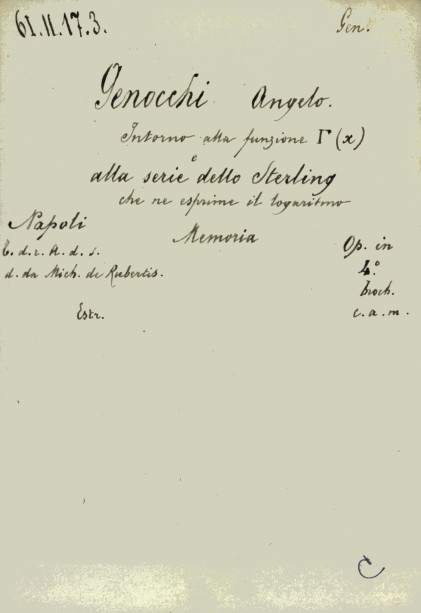 61.II.17.3.
Gen.
Genocchi Angelo.
Intorno alla funzione Γ(x)
e
alla serie dello Sterling
che ne esprime il logaritmo
Memoria
Napoli
T. d. r. A. d. s.
d. da Mich. de Rubertis.
Estr.
Op. in
4.°
broch.
c. a. m.
C